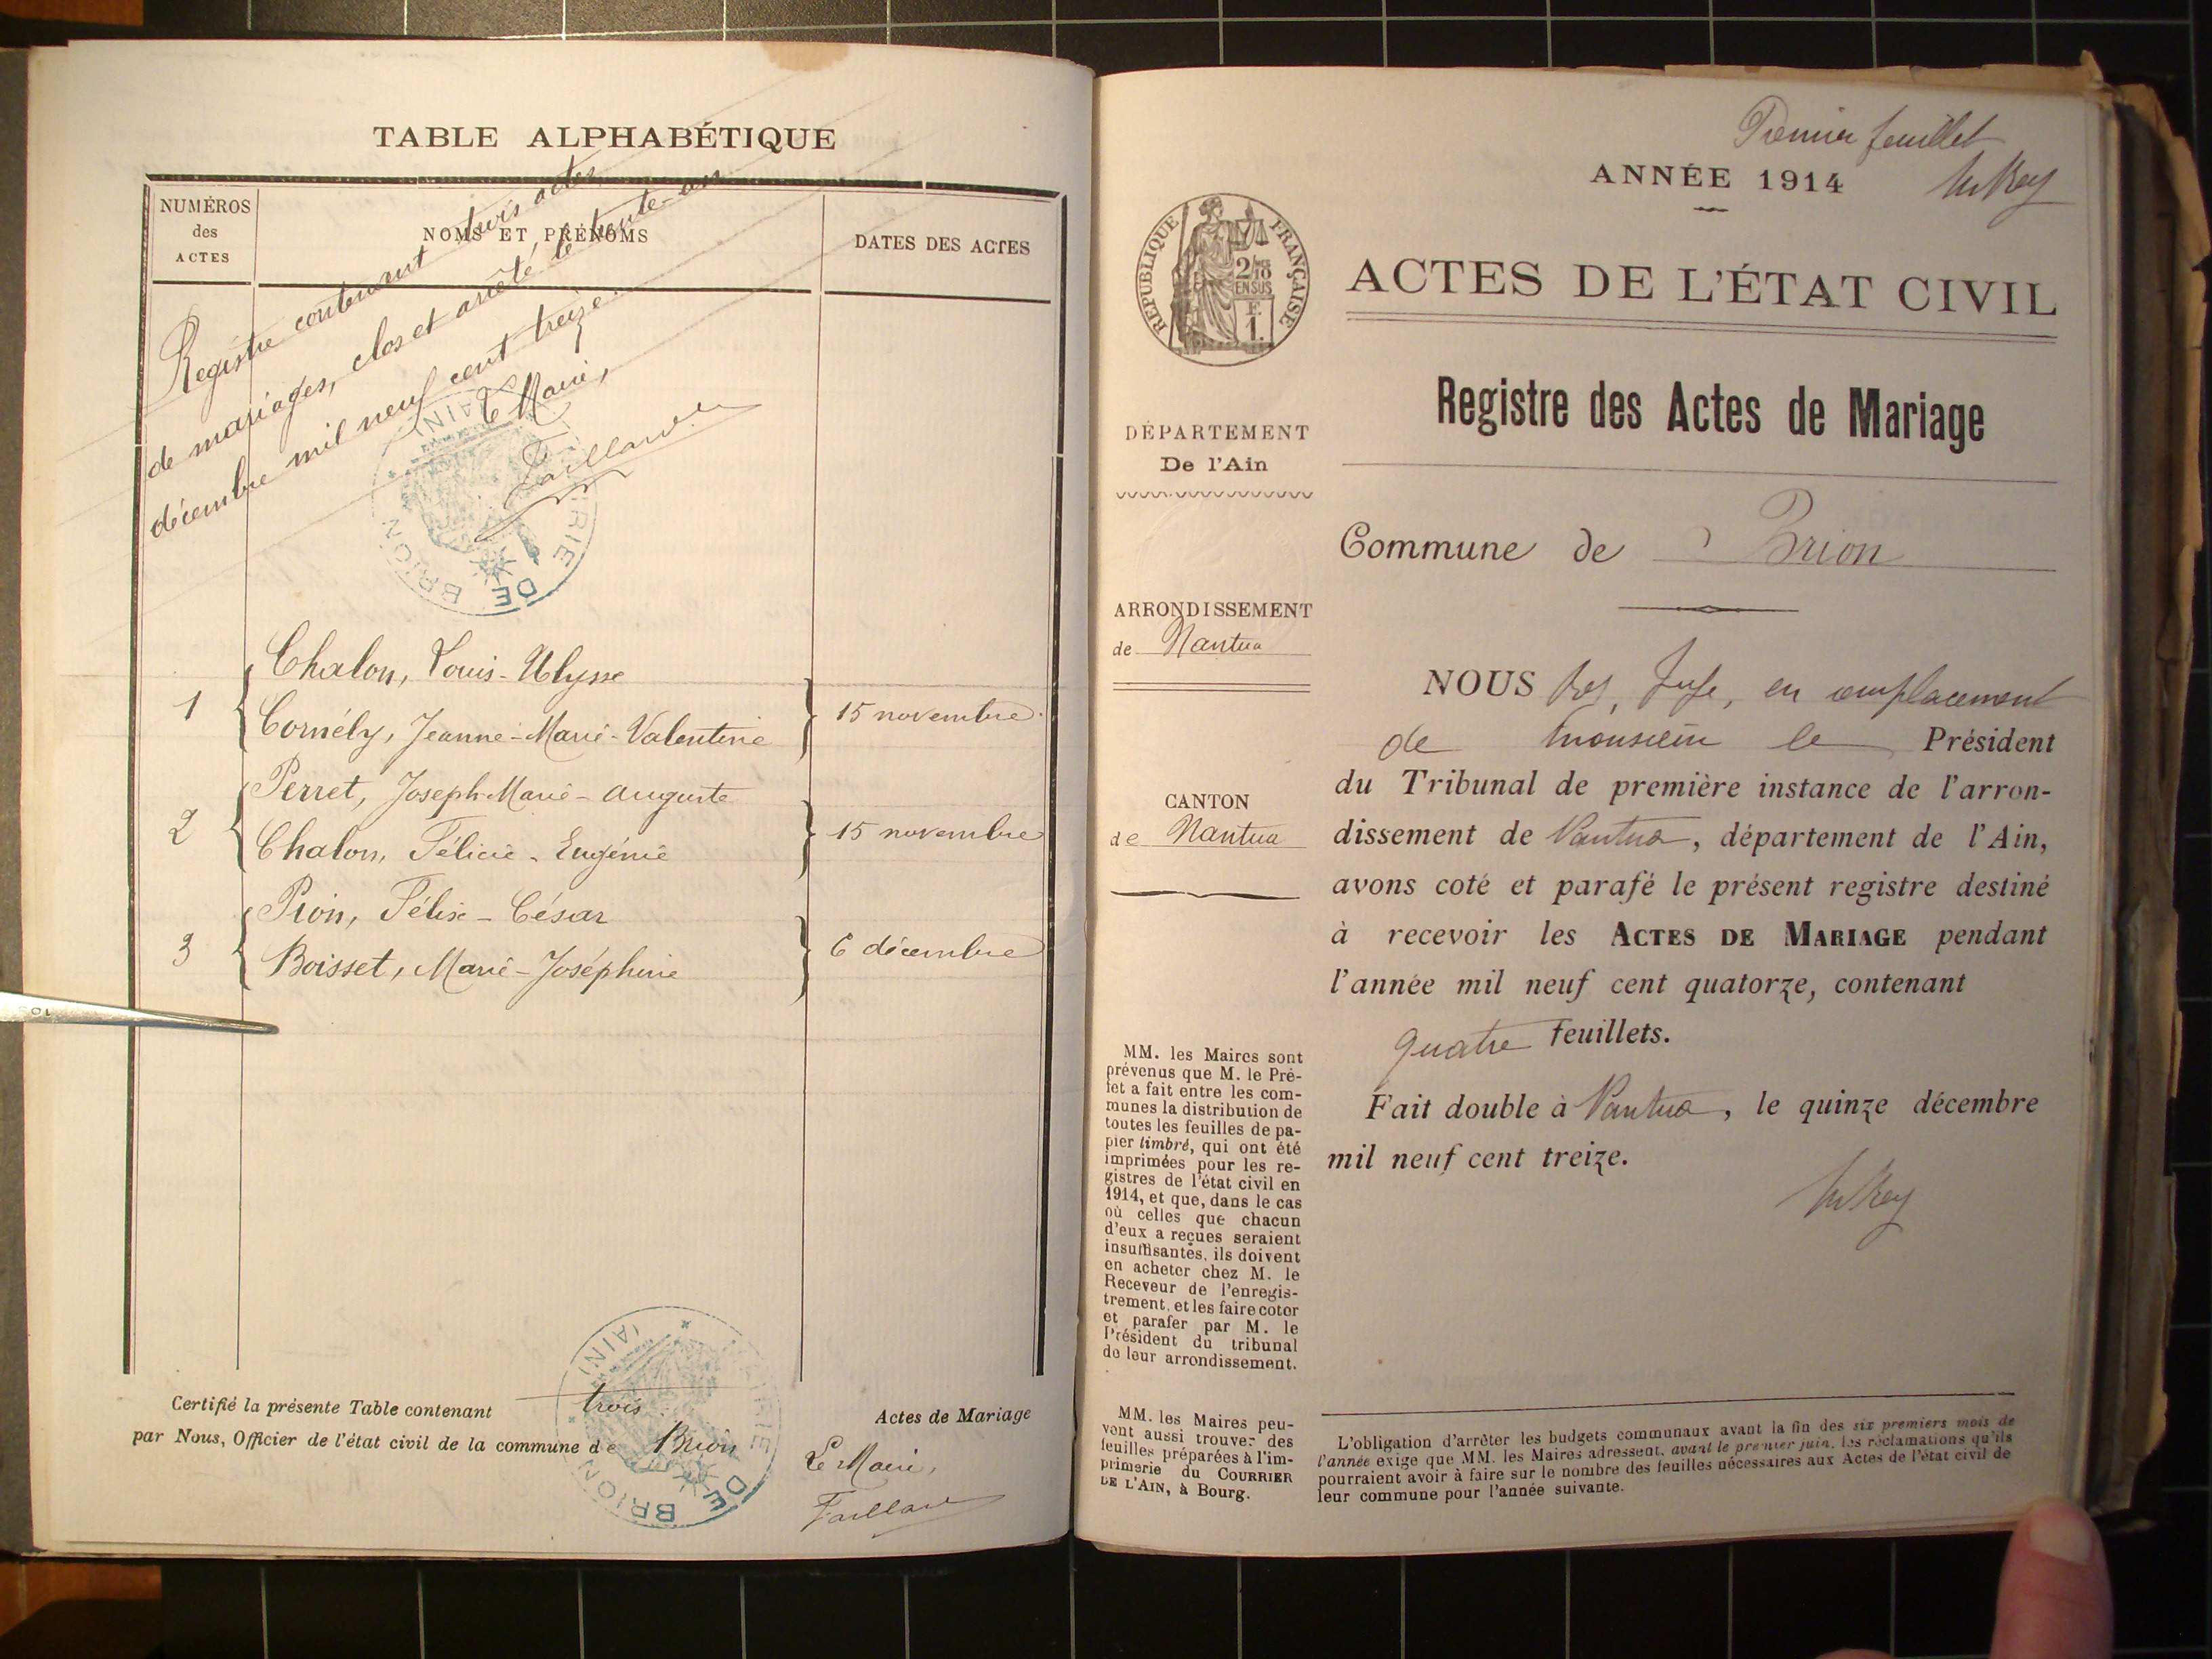 TABLE ALPHABÉTIQUE
NUMÉROS
des
ACTES
NOMS ET PRÉNOMS
DATES DES ACTES
Registre contenant trois actes
de mariages, clos et arrêté le trente-un
décembre mil neuf cent treize.
Le Maire,
MAIRIE DE BRION
(AIN)
Chalon, Louis-Ulysse
1
Cornély, Jeanne-Marie-Valentine
15 novembre
Perret, Joseph-Marie-Auguste
2
Chalon, Félicie-Eugénie
15 novembre
Pion, Félix-César
3
Boisset, Marie-Joséphine
6 décembre
Certifié la présente Table contenant trois Actes de Mariage
par Nous, Officier de l'état civil de la commune de Brion
Le Maire,
MAIRIE DE BRION
(AIN)
Premier feuillet
ANNÉE 1914
RÉPUBLIQUE FRANÇAISE
2/10
EN SUS
F.
1.
ACTES DE L'ÉTAT CIVIL
Registre des Actes de Mariage
DÉPARTEMENT
De l'Ain
Commune de Brion
ARRONDISSEMENT
de Nantua
CANTON
de Nantua
NOUS en remplacement
de Monsieur le Président
du Tribunal de première instance de l'arron-
dissement de Nantua, département de l'Ain,
avons coté et parafé le présent registre destiné
à recevoir les ACTES DE MARIAGE pendant
l'année mil neuf cent quatorze, contenant
quatre feuillets.
Fait double à Nantua, le quinze décembre
mil neuf cent treize.
MM. les Maires sont
prévenus que M. le Pré-
fet a fait entre les com-
munes la distribution de
toutes les feuilles de pa-
pier timbré, qui ont été
imprimées pour les re-
gistres de l'état civil en
1914, et que, dans le cas
où celles que chacun
d'eux a reçues seraient
insuffisantes, ils doivent
en acheter chez M. le
Receveur de l'enregis-
trement, et les faire coter
et parafer par M. le
Président du tribunal
de leur arrondissement.
MM. les Maires peu-
vent aussi trouver des
feuilles préparées à l'im-
primerie du COURRIER
DE L'AIN, à Bourg.
L'obligation d'arrêter les budgets communaux avant la fin des six premiers mois de
l'année exige que MM. les Maires adressent, avant le premier juin, les réclamations qu'ils
pourraient avoir à faire sur le nombre des feuilles nécessaires aux Actes de l'état civil de
leur commune pour l'année suivante.